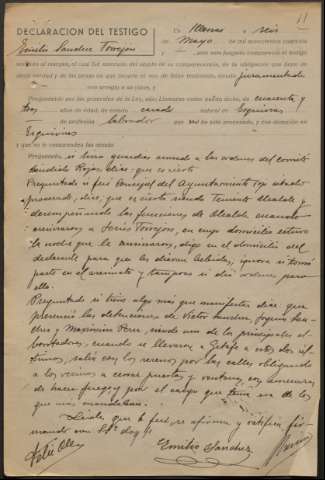 11
DECLARACION DEL TESTIGO
Emilio Sanchez Torrejon
En Illescas a seis
de Mayo de mil novecientos cuarenta
ante este Juzgado compareció el testigo
anotado al margen, el cual fué enterado del objeto de su comparecencia, de la obligación que tiene de
decir verdad y de las penas en que incurre el reo de falso testimonio, siendo juramentado
con arreglo a su clase, y
Preguntado por las generales de la Ley, dijo: Llamarse como queda dicho, de cuarenta y
tres años de edad, de estado casado natural de Esquivias
de profesión labrador que no ha sido procesado, y con domicilio en
Esquivias
y que no le comprenden las demás.
Preguntado si hizo guardias armado a las ordenes del comité
Sandialo Rojas, dice: que es cierto
Preguntado si fué Concejal del Ayuntamiento
dice, que es cierto siendo Teniente Alcalde y
desempeñando las funciones de Alcalde cuando
asesinaron a Torrejon, en cuyo domicilio estuvo
la noche que le asesinaron, digo en el domicilio del
declarante para que les dieran bebidas, ignora si tomó
parte en el asesinato y tampoco si dió ordenes para
ello.
Preguntado si tiene algo mas que manifestar dice que
presenció las detenciones de Victor Sanchez, Joaquin San-
chez y Maximino Pero, siendo uno de los principales al-
borotadores, cuando se llevaron a Getafe a estos dos úl-
timos, salió con los serenos por las calles obligando
a los vecinos a cerrar puertas y ventanas, con amenazas
de hacer fuego, y por el cargo que tenia era de los
que mas mandaban.
Leida que le fué, se afirma y ratifica fir-
mando con Sª doy fé
Emilio Sanchez